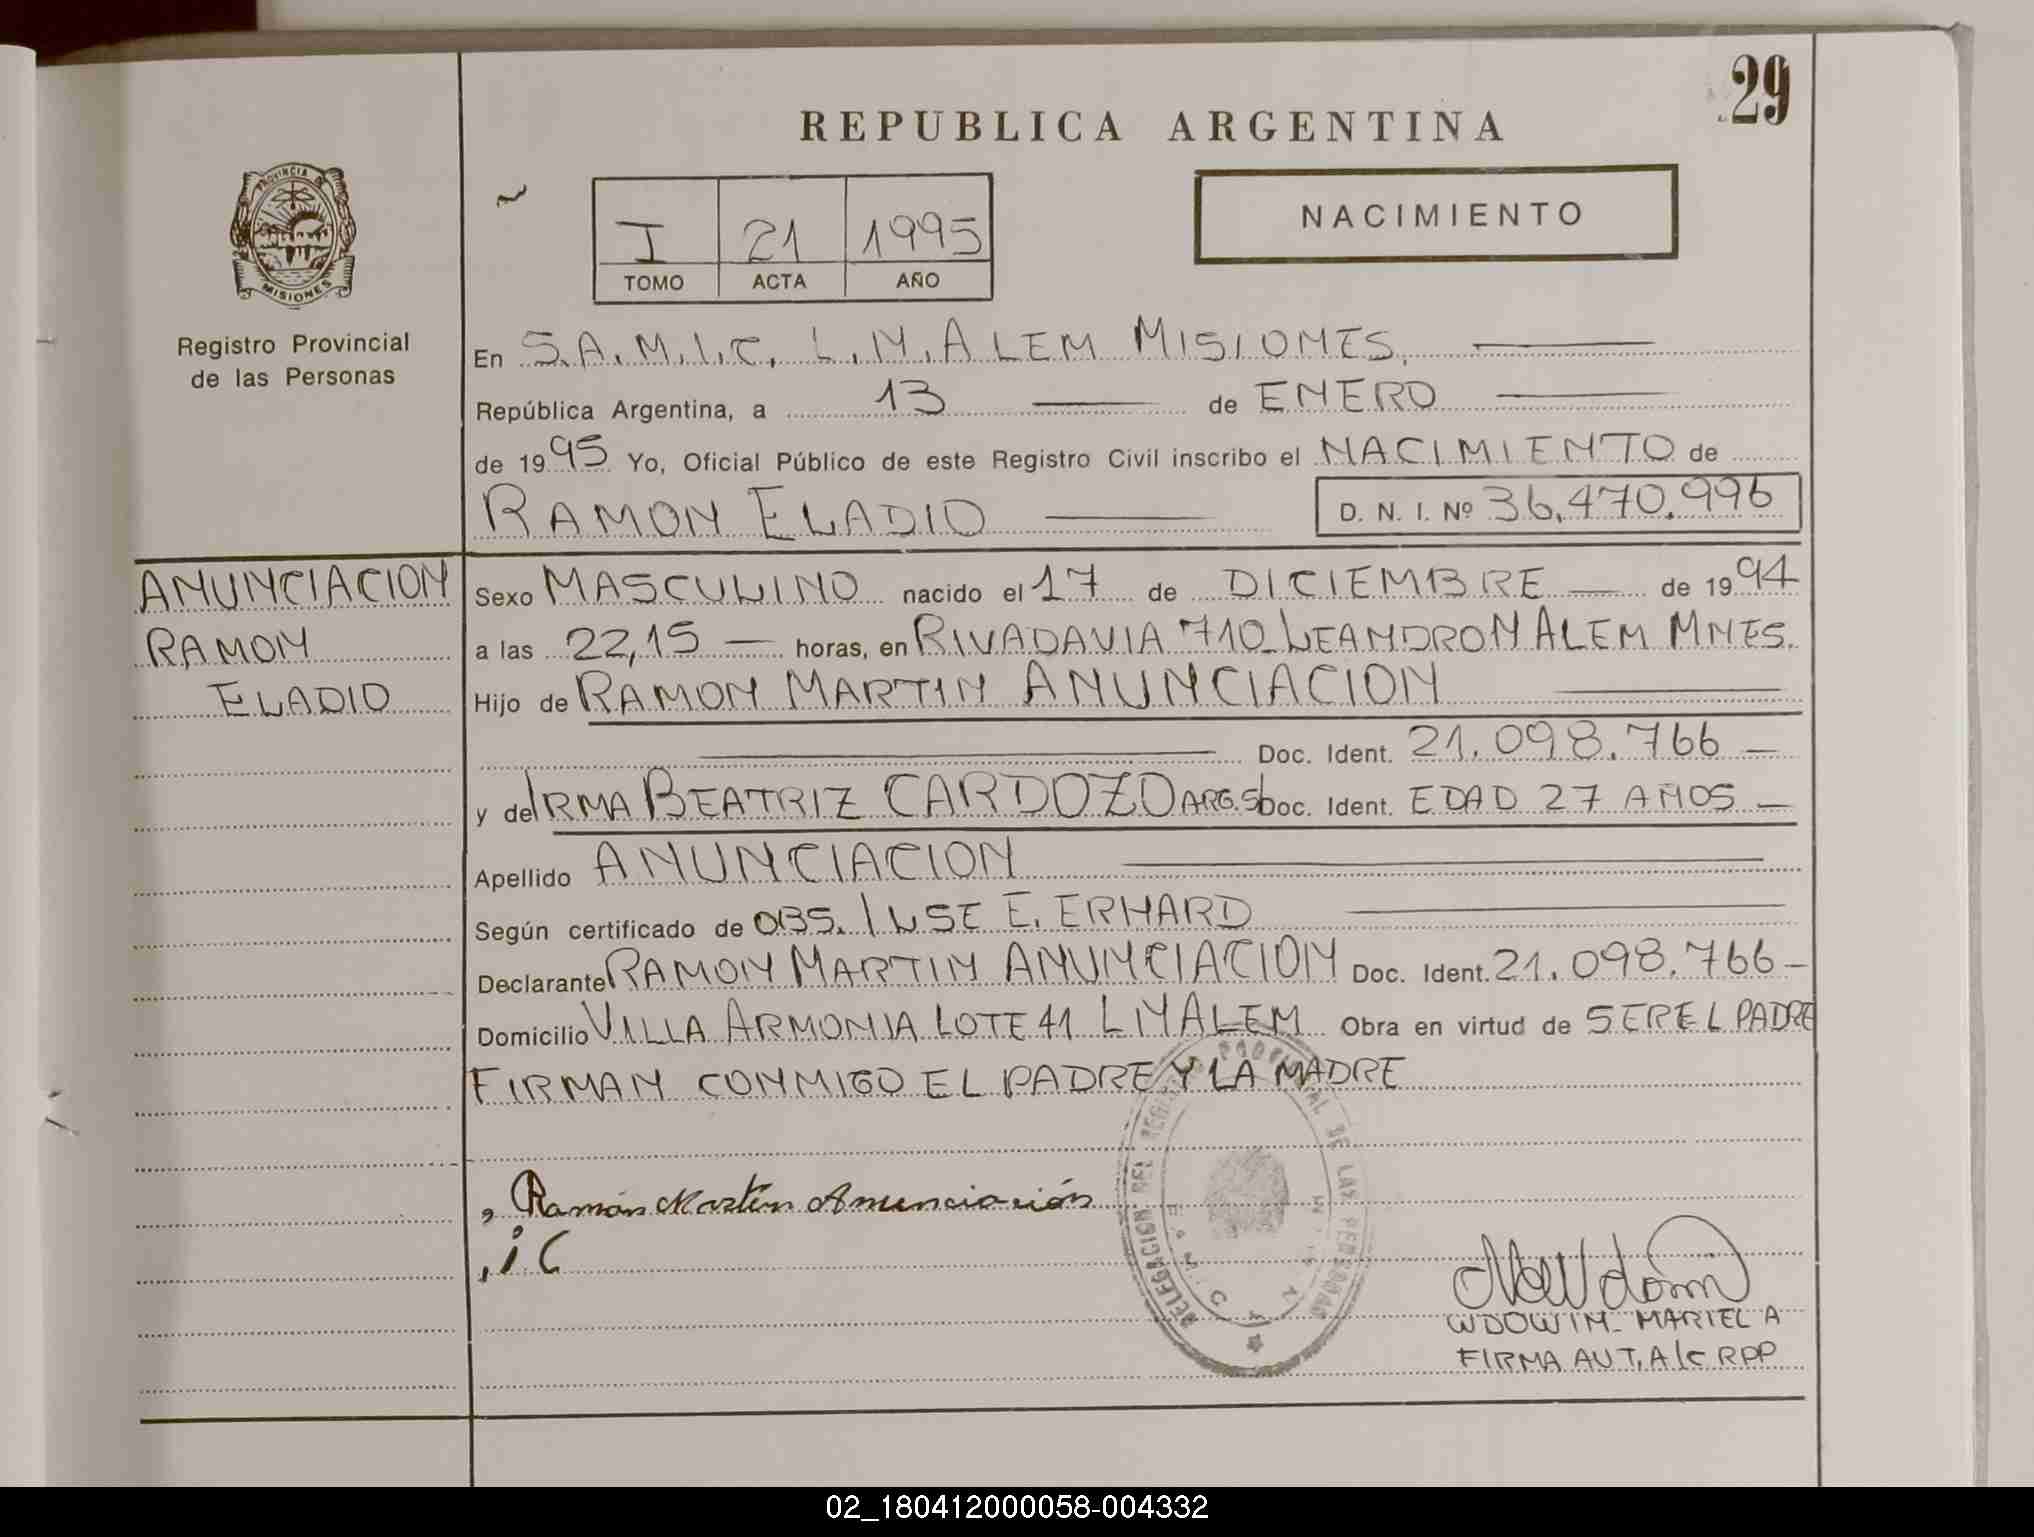 29
REPUBLICA ARGENTINA
PROVINCIA DE
MISIONES
Registro Provincial
de las Personas
I 21 1995
TOMO ACTA AÑO
NACIMIENTO
En S.A.M.I.C. L.N.ALEM MISIONES.
República Argentina, a 13 de ENERO
de 1995 Yo, Oficial Público de este Registro Civil inscribo el NACIMIENTO de
RAMON ELADIO D. N. I. Nº 36.470.996
ANUNCIACION
RAMON
ELADIO
Sexo MASCULINO nacido el 17 de DICIEMBRE de 1994
a las 22,15 horas, en RIVADAVIA 710_LEANDRO N ALEM MNES.
Hijo de RAMON MARTIN ANUNCIACION
Doc. Ident. 21.098.766
y de IRMA BEATRIZ CARDOZO ARG. Doc. Ident. EDAD 27 AÑOS
Apellido ANUNCIACION
Según certificado de OBS. ILSE E. ERHARD
Declarante RAMON MARTIN ANUNCIACION Doc. Ident. 21.098.766
Domicilio VILLA ARMONIA LOTE 41 L N ALEM Obra en virtud de SER EL PADRE
FIRMAN CONMIGO EL PADRE Y LA MADRE
DELEGACION DEL REGISTRO PROVINCIAL DE LAS PERSONAS
Ramón Martin Anunciación
i C
WDOWIN_ MARIEL A
FIRMA AUT. A/C RPP
02_180412000058-004332